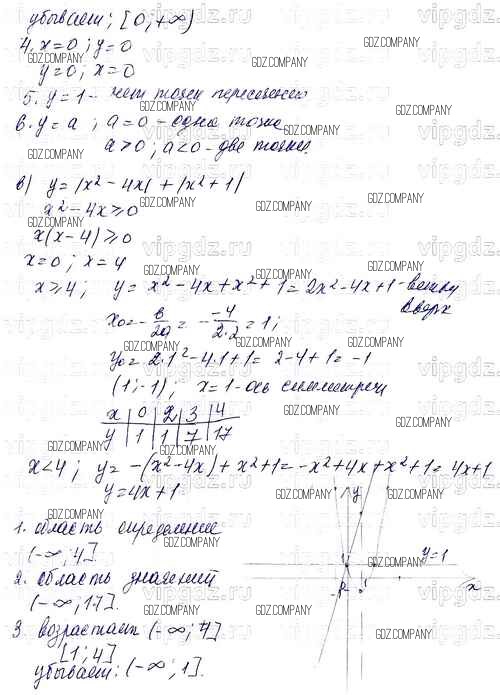 убывает; [0; +∞)
4. x=0; y=0
y=0; x=0
5. y=1 - нет точек пересечения
6. y=a; a=0 - одна точка
a>0; a<0 - две точки.
в) y=|x²-4x|+|x²+1|
x²-4x≥0
x(x-4)≥0
x=0; x=4
x≥4; y=x²-4x+x²+1=2x²-4x+1 - ветви
вверх
x₀=-в/2a=-(-4)/(2·2)=1;
y₀=2·1²-4·1+1=2-4+1=-1
(1;-1); x=1 - ось симметрии
x | 0 | 2 | 3 | 4
y | 1 | 1 | 7 | 17
x<4; y=-(x²-4x)+x²+1=-x²+4x+x²+1=4x+1
y=4x+1
y
y=1
x
1. область определение
(-∞; 4]
2. область значений
(-∞; 17].
3. возрастает (-∞; 4].
[1; 4]
убывает: (-∞; 1].
vipgdz.ru
GDZ.COMPANY